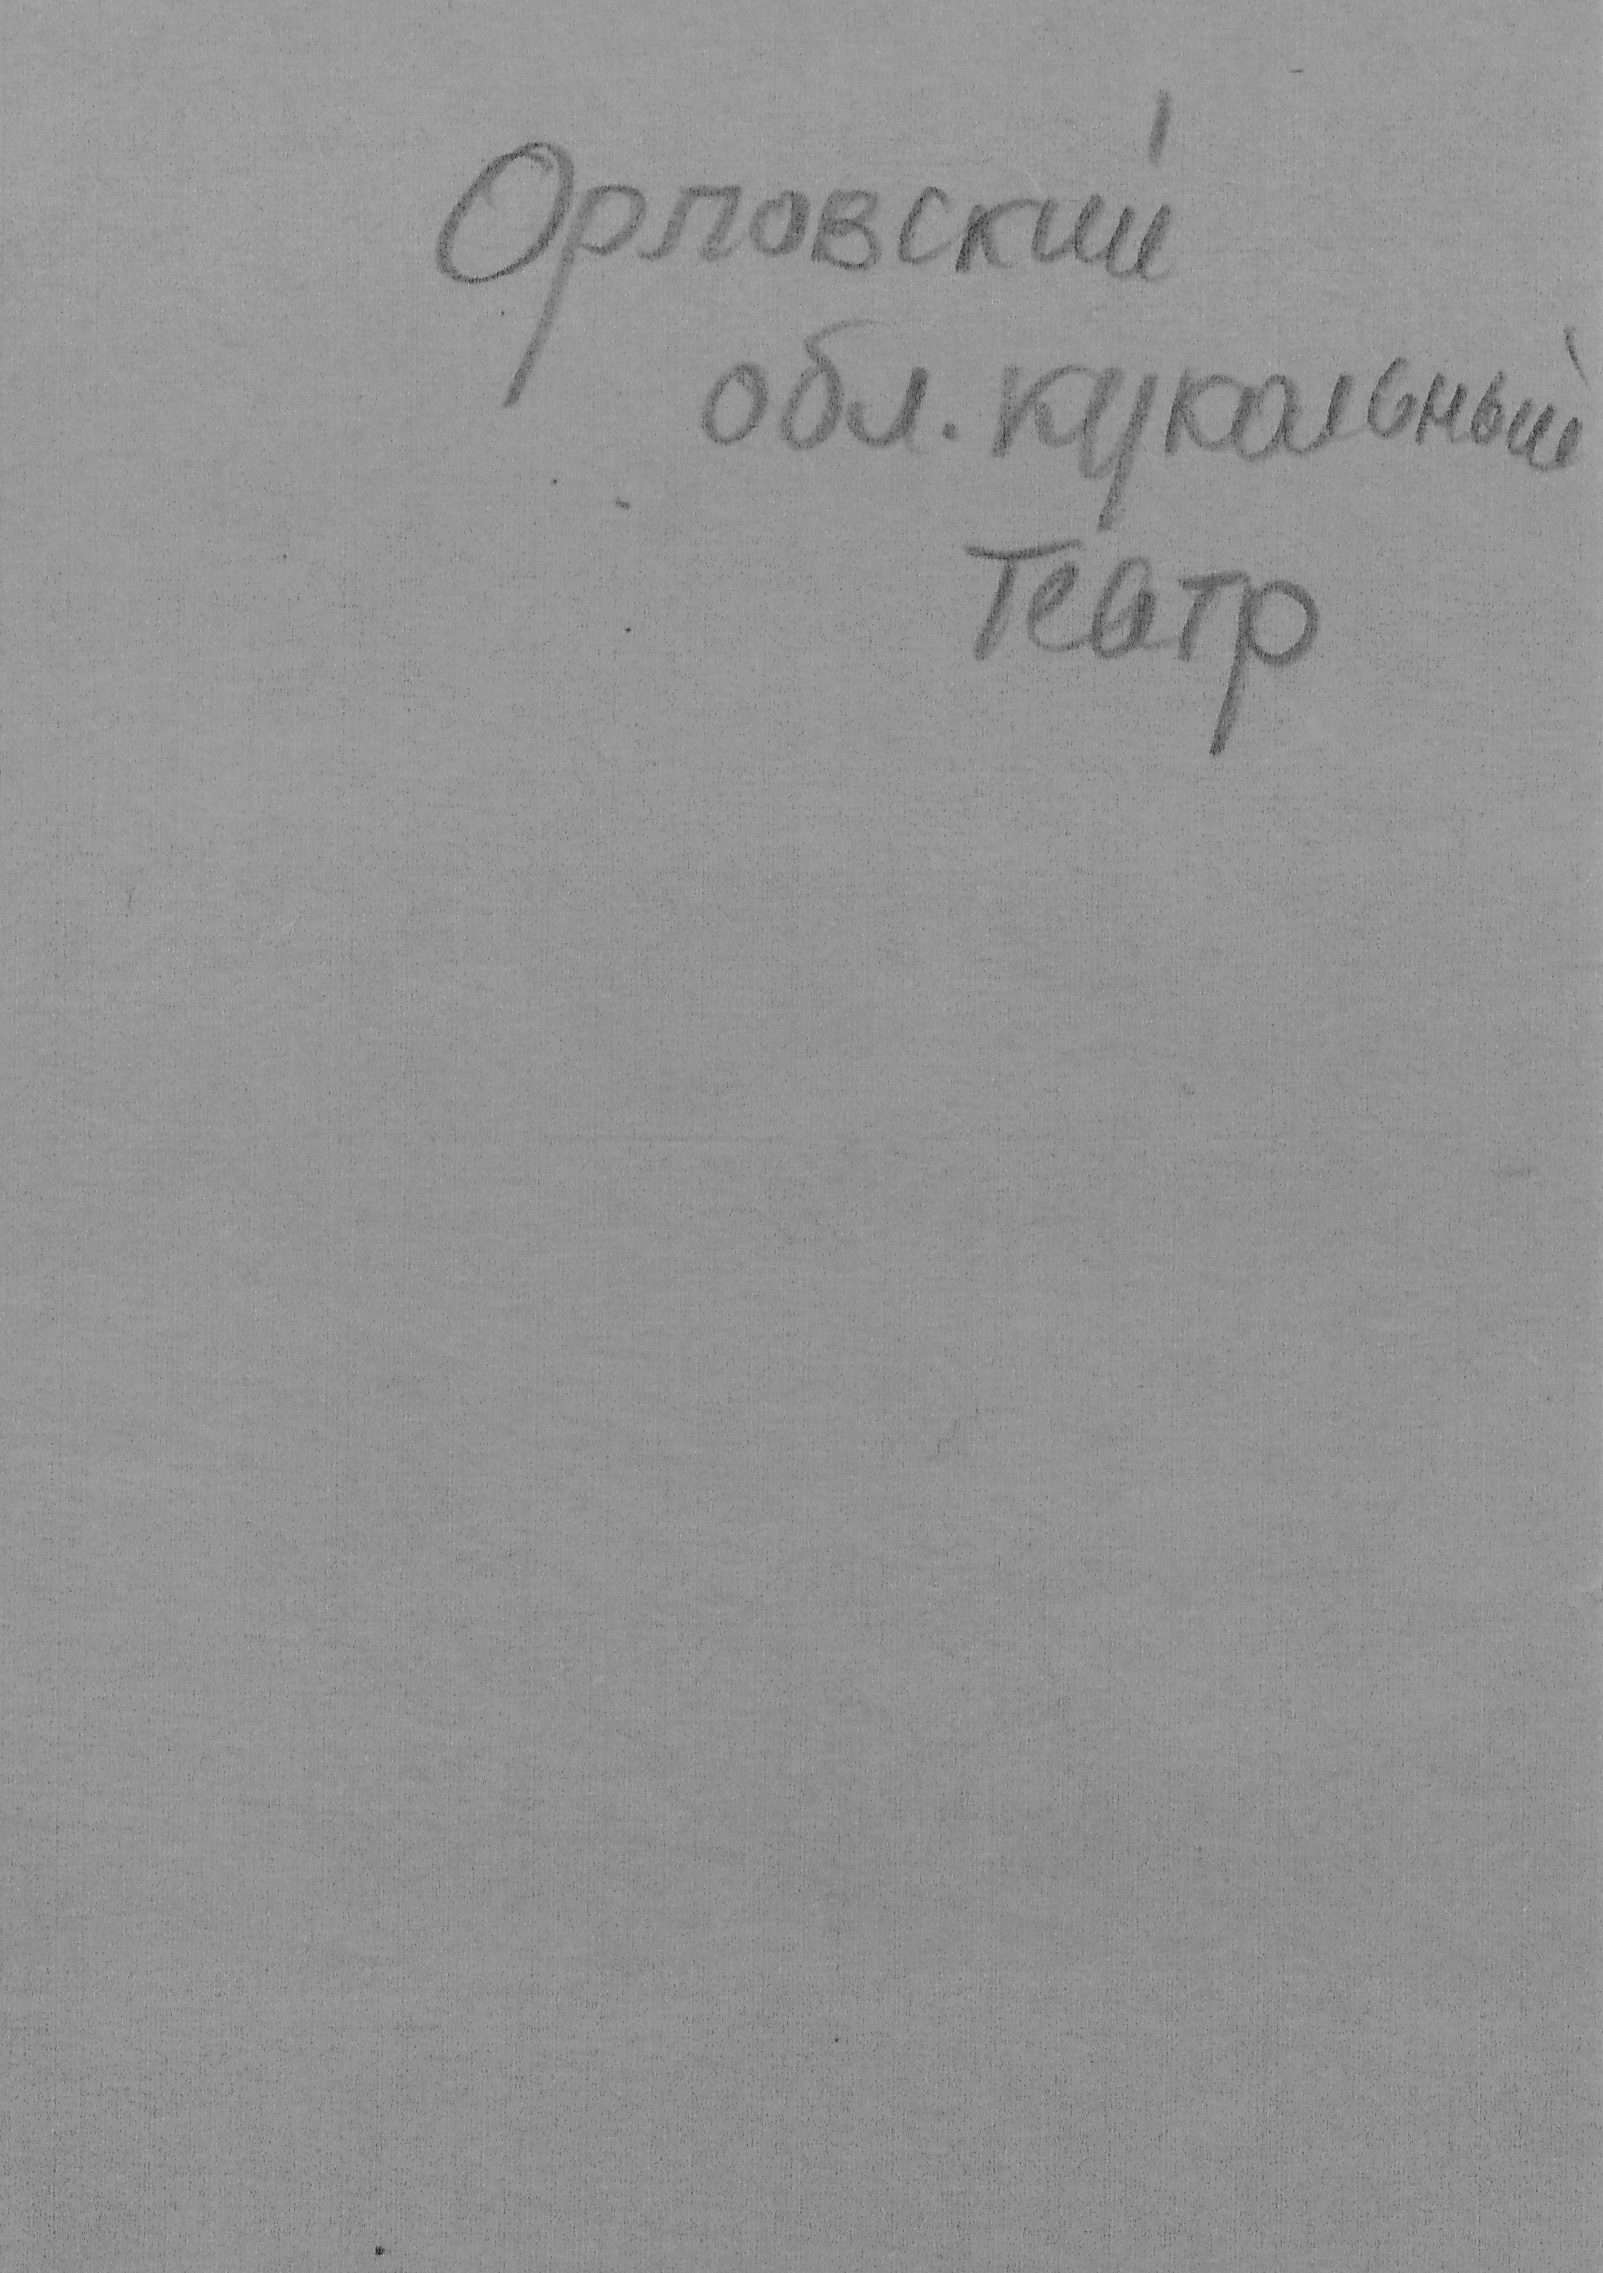 Орловский
обл. кукольный
театр